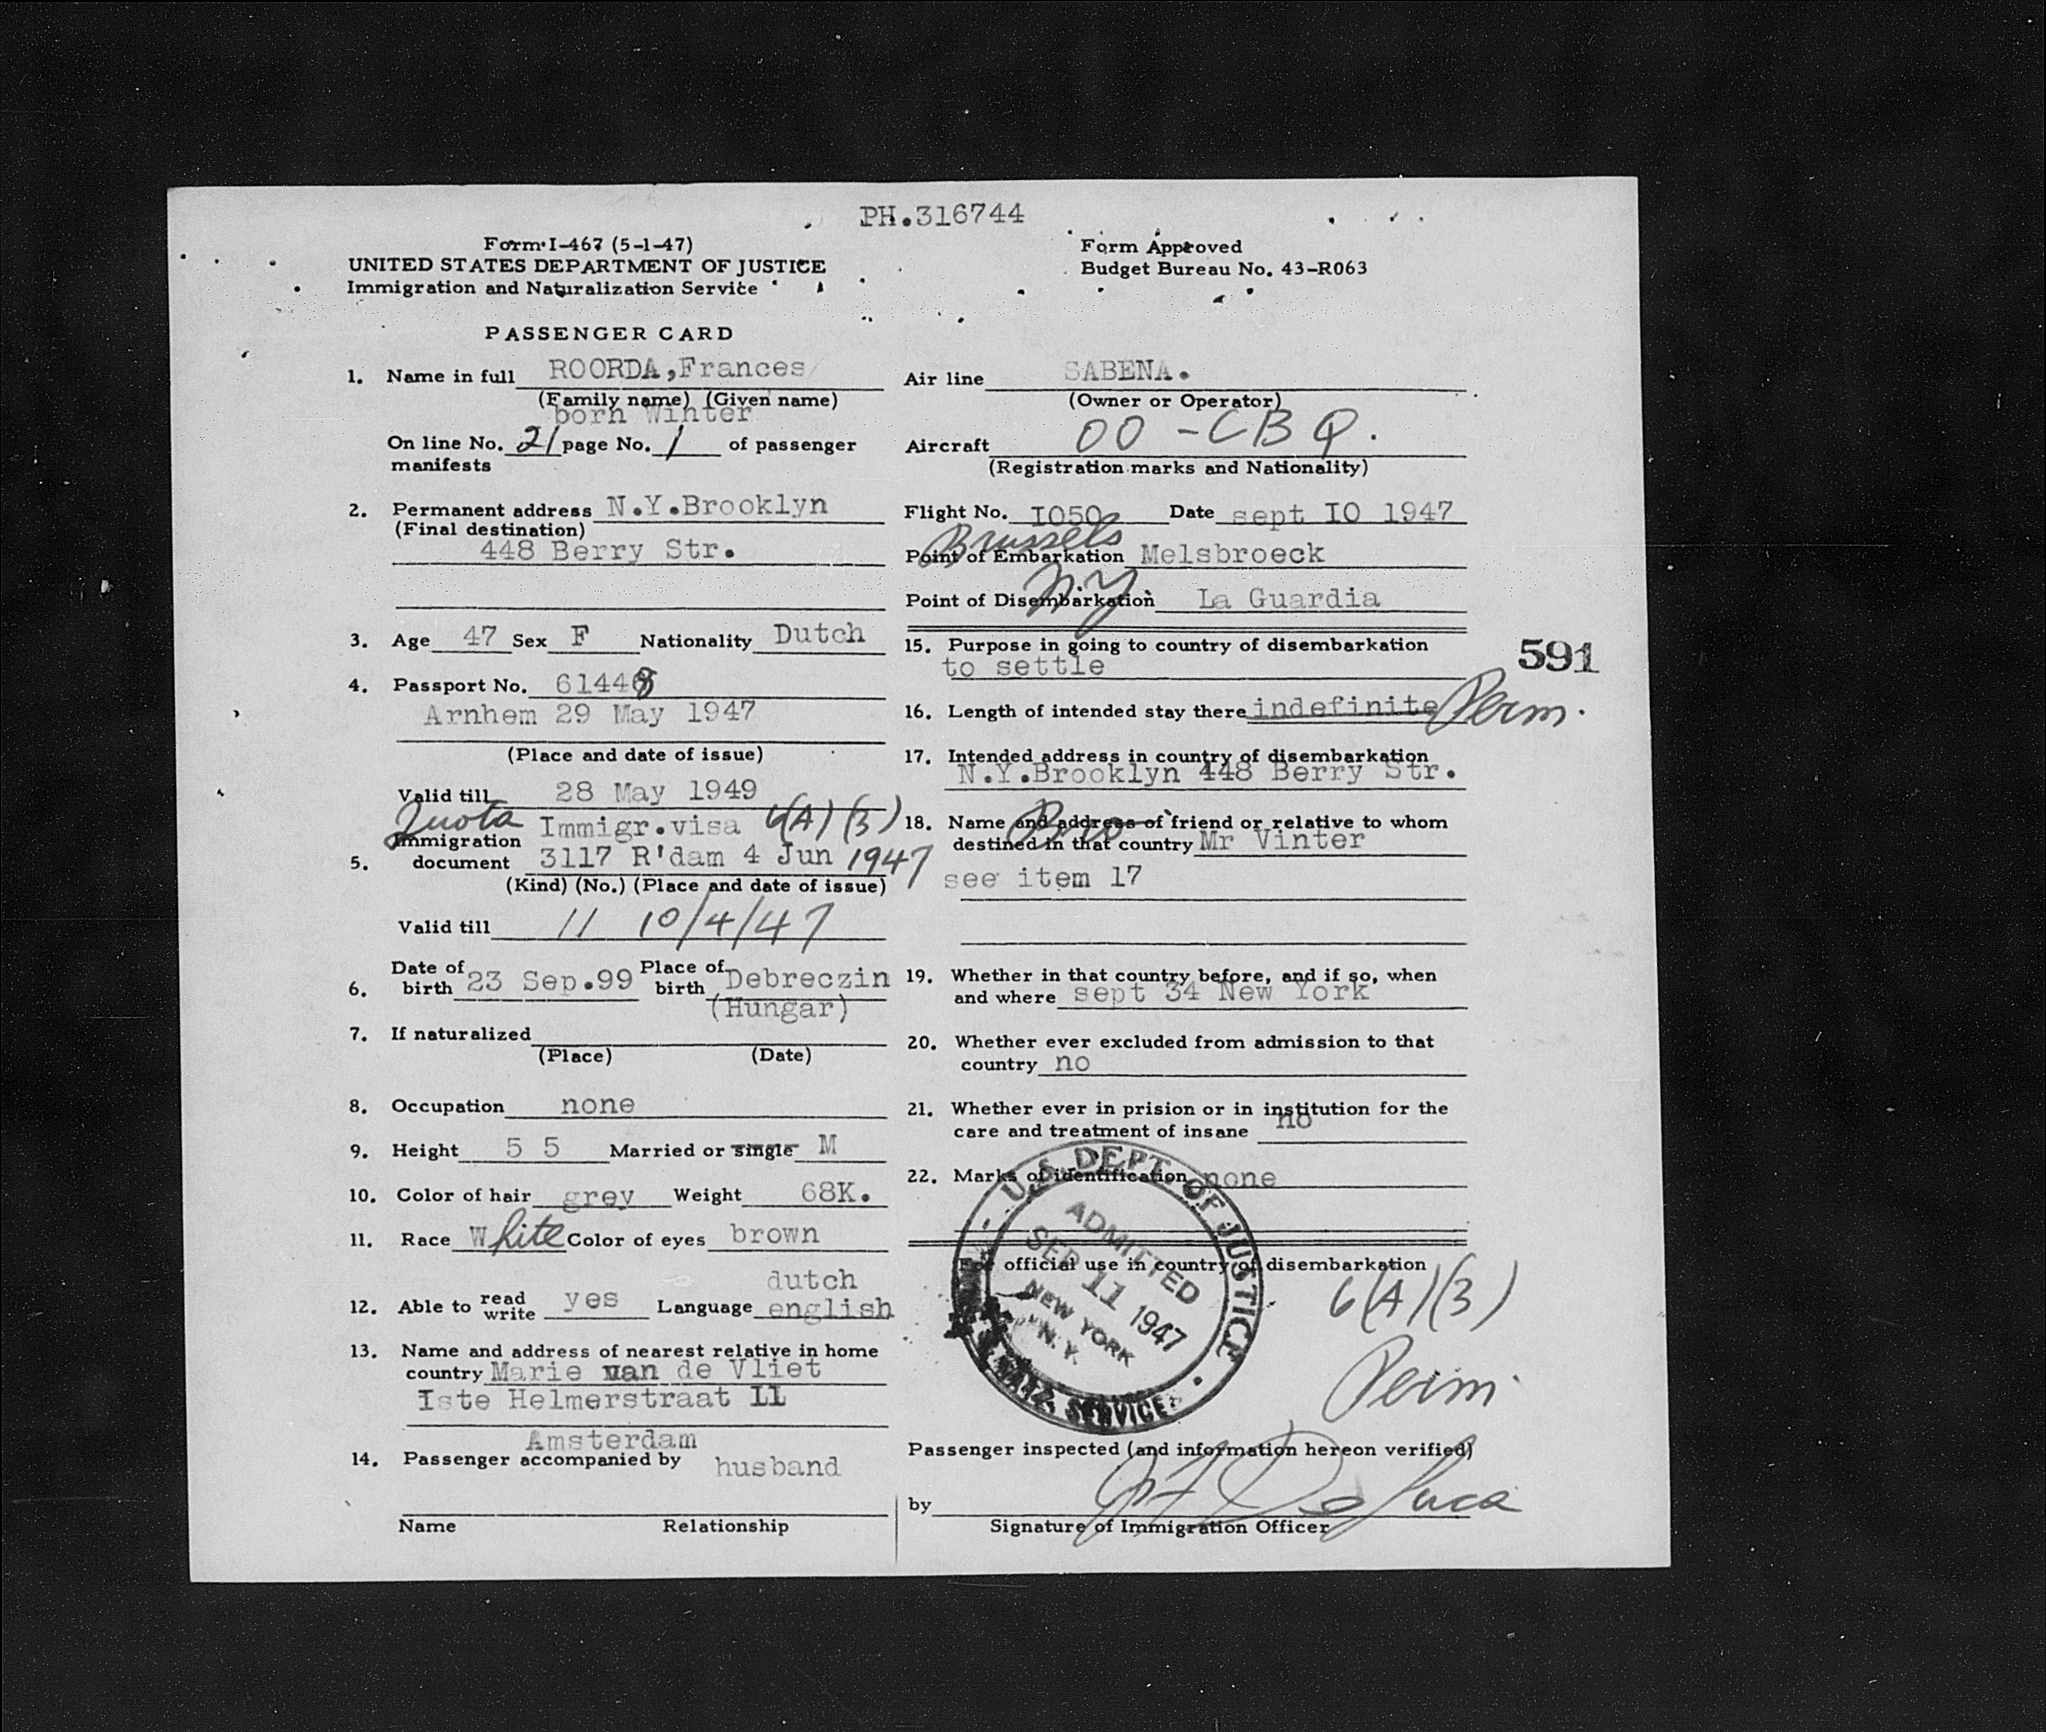 PH.316744
Form I-467 (5-1-47)
UNITED STATES DEPARTMENT OF JUSTICE
Immigration and Naturalization Service
Form Approved
Budget Bureau No. 43-R063
PASSENGER CARD
1. Name in full ROORDA,Frances
(Family name) (Given name)
born Winter
On line No. 21 page No. 1 of passenger
manifests
2. Permanent address N.Y.Brooklyn
(Final destination)
448 Berry Str.
3. Age 47 Sex F Nationality Dutch
4. Passport No. 61448
Arnhem 29 May 1947
(Place and date of issue)
Valid till 28 May 1949
Quota Immigr.visa 6(A)(3)
5. Immigration document 3117 R'dam 4 Jun 1947
(Kind) (No.) (Place and date of issue)
Valid till 11 10/4/47
6. Date of birth 23 Sep.99 Place of birth Debreczin
(Hungar)
7. If naturalized
(Place) (Date)
8. Occupation none
9. Height 5 5 Married or single M
10. Color of hair grey Weight 68K.
11. Race White Color of eyes brown
dutch
12. Able to read write yes Language english
13. Name and address of nearest relative in home
country Marie van de Vliet
Iste Helmerstraat 11
Amsterdam
14. Passenger accompanied by husband
Name Relationship
Air line SABENA.
(Owner or Operator)
Aircraft OO-CBQ.
(Registration marks and Nationality)
Flight No. I050 Date sept IO 1947
Brussels
Point of Embarkation Melsbroeck
N.Y
Point of Disembarkation La Guardia
15. Purpose in going to country of disembarkation
to settle
591
16. Length of intended stay there indefinite Perm.
17. Intended address in country of disembarkation
N.Y.Brooklyn 448 Berry Str.
18. Name and address of friend or relative to whom
Bro
destined in that country Mr Vinter
see item 17
19. Whether in that country before, and if so, when
and where sept 34 New York
20. Whether ever excluded from admission to that
country no
21. Whether ever in prision or in institution for the
care and treatment of insane no
22. Marks of identification none
For official use in country of disembarkation
U.S. DEPT. OF JUSTICE
ADMITTED
SEP 11 1947
NEW YORK
N.Y.
SERVICE
6(A)(3)
Perm.
Passenger inspected (and information hereon verified)
by De Luca
Signature of Immigration Officer